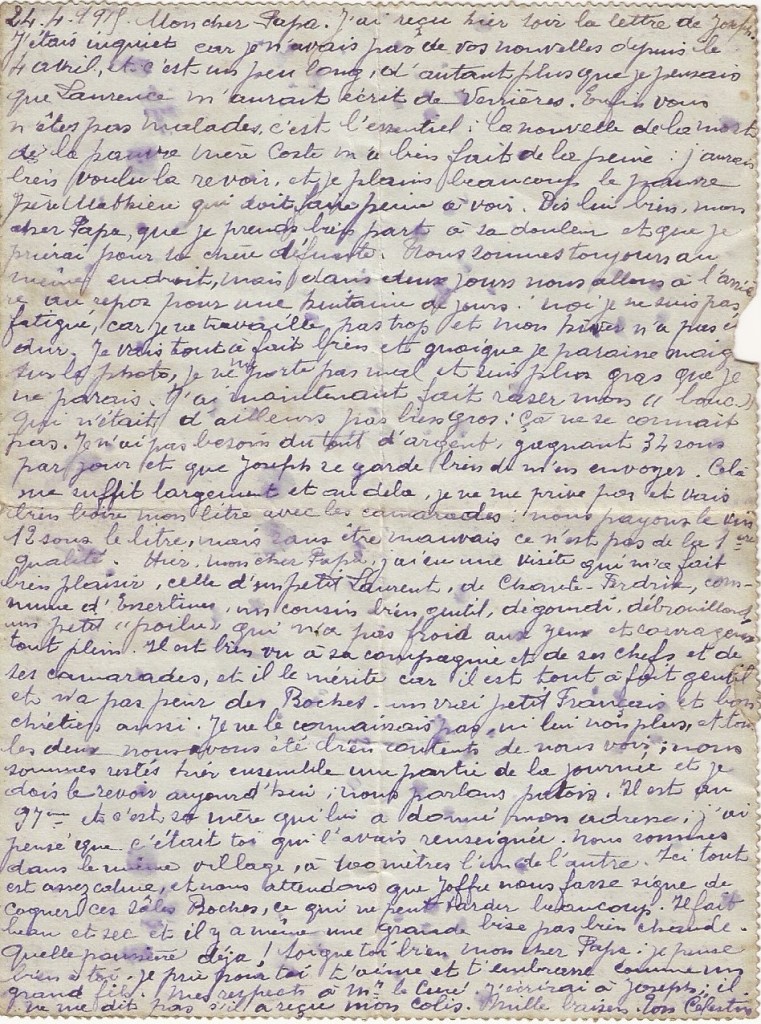 24.4.1915 Mon cher Papa. J'ai reçu hier soir la lettre de Joseph.
J'étais inquiet car je n'avais pas de vos nouvelles depuis le
4 avril, et c'est un peu long, d'autant plus que je pensais
que Laurence m'aurait écrit de Verrières. Enfin vous
n'êtes pas malades, c'est l'essentiel ; la nouvelle de la mort
de la pauvre mère Coste m'a bien fait de la peine : j'aurais
bien voulu la revoir, et je plains beaucoup le pauvre
père Mathieu qui doit faire peine à voir. Dis lui bien, mon
cher Papa, que je prends bien part à sa douleur et que je
prierai pour sa chère défunte. Nous sommes toujours au
même endroit, mais dans deux jours nous allons à l'arriè
re au repos pour une huitaine de jours ! moi je ne suis pas
fatigué, car je ne travaille pas trop et mon hiver n'a pas é
dur. Je vais tout à fait bien et quoique je paraisse maig
sur la photo, je ne porte pas mal et suis plus gras que je
ne parais. J'ai maintenant fait raser mon "bouc"
qui n'était d'ailleurs pas bien gros : Ça ne se connait
pas. Je n'ai pas besoin du tout d'argent, gagnant 34 sous
par jour et que Joseph se garde bien de m'en envoyer. Cela
me suffit largement et au delà, je ne me prive pas et vais
bien boire mon litre avec les camarades : nous payons le vin
12 sous le litre, mais sans être mauvais ce n'est pas de la 1ère
qualité. Hier, mon cher Papa, j'ai eu une visite qui m'a fait
bien plaisir, celle d'un petit Laurent, de Chante-Perdrix, com-
mune d'Essertines, un cousin bien gentil, dégourdi, débrouillard,
un petit "poilu" qui n'a pas froid aux yeux et courageux
tout plein. Il est bien vu à sa compagnie et de ses chefs et de
ses camarades, et il le mérite car il est tout à fait gentil
et n'a pas peur des Boches - un vrai petit Français et bon
chrétien aussi. Je ne le connaissais pas, ni lui non plus, et tous
les deux nous avons été bien contents de nous voir ; nous
sommes restés hier ensemble une partie de la journée et je
dois le revoir aujourd'hui ; nous parlons patois. Il est au
97me et c'est sa mère qui lui a donné mon adresse ; j'ai
pensé que c'était toi qui l'avais renseignée. Nous sommes
dans le même village, à 100 mètres l'un de l'autre. Ici tout
est assez calme, et nous attendons que Joffre nous fasse signe de
cogner ces sâles Boches, ce qui ne peut tarder beaucoup. Il fait
beau et sec et il y a même une grande bise pas bien chaude.
Quelle poussière déjà ! Soigne toi bien mon cher Papa : je pense
bien à toi. Je prie pour toi t'aime et t'embrasse comme un
grand fils. Mes respects à Mr le Curé. J'écrirai à Joseph ; il
ne me dit pas s'il a reçu mon colis. Mille baisers. Ton Célestin